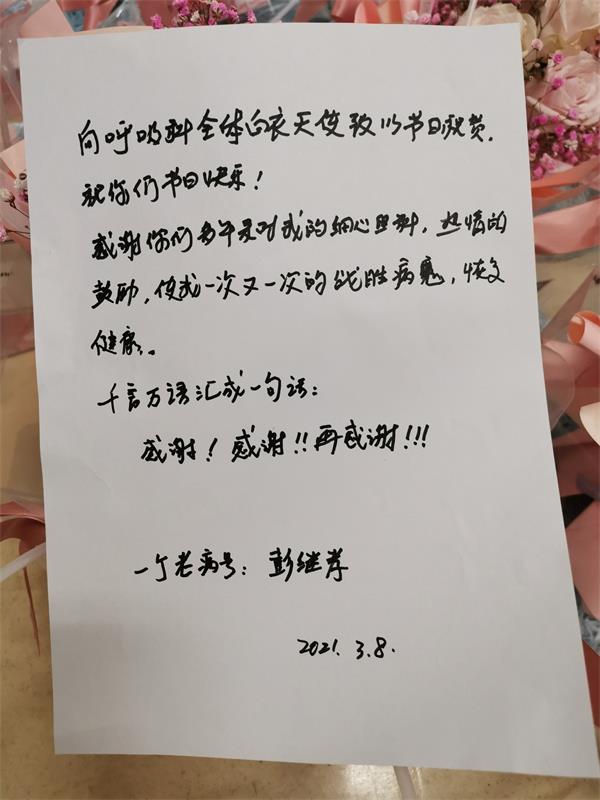 向呼吸科全体白衣天使致以节日祝贺.
祝你们节日快乐!
感谢你们多年来对我的细心照料,热情的
鼓励,使我一次又一次的战胜病魔,恢复
健康。
千言万语汇成一句话:
感谢! 感谢!! 再感谢!!!
一个老病号: 彭继孝
2021. 3. 8.